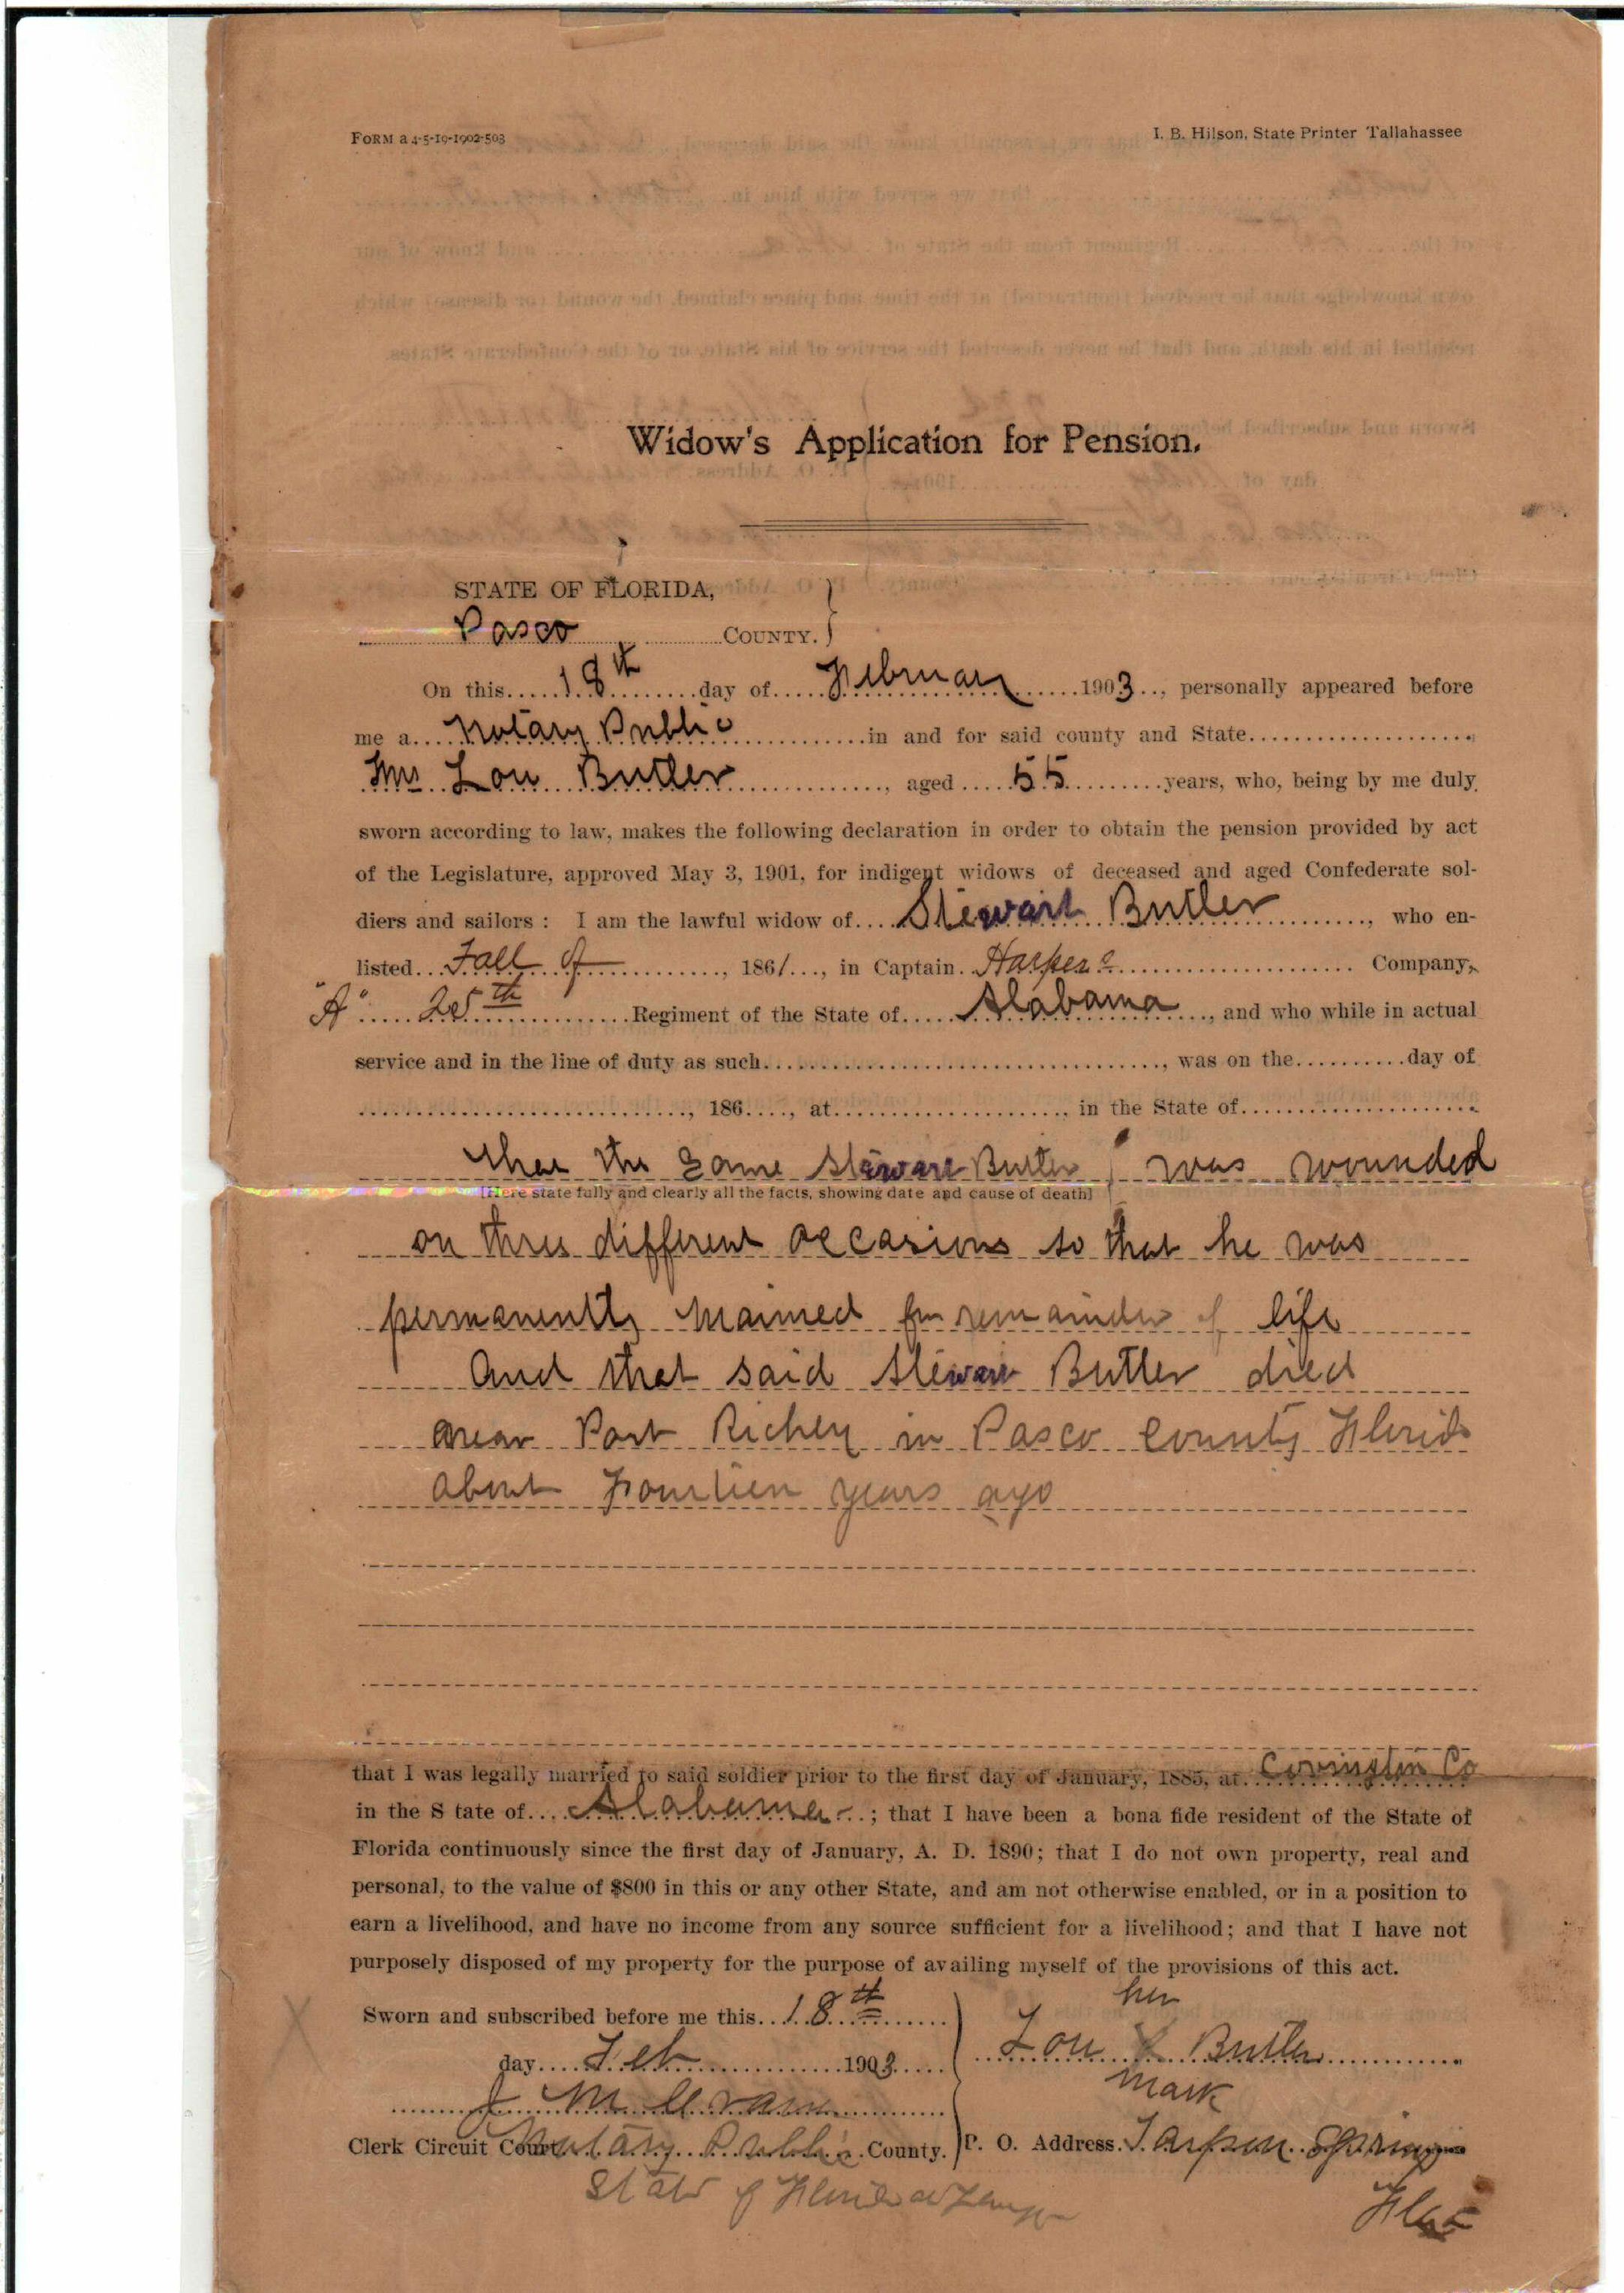 FORM a 4-5-19-1902-503
I. B. Hilson, State Printer Tallahassee
Widow's Application for Pension.
STATE OF FLORIDA,
Pasco COUNTY.
On this 18th day of February 1903, personally appeared before
me a Notary Public in and for said county and State
Mrs Lou Butler, aged 55 years, who, being by me duly
sworn according to law, makes the following declaration in order to obtain the pension provided by act
of the Legislature, approved May 3, 1901, for indigent widows of deceased and aged Confederate sol-
diers and sailors: I am the lawful widow of Stewart Butler, who en-
listed Fall of, 1861, in Captain Harpers Company,
"A" 25th Regiment of the State of Alabama, and who while in actual
service and in the line of duty as such, was on the day of
, 186, at, in the State of
that the same Stewart Butler was wounded
[Here state fully and clearly all the facts, showing date and cause of death]
on three different occasions so that he was
permanently maimed for remainder of life
And that said Stewart Butler died
near Port Richey in Pasco County Florida
about fourteen years ago
that I was legally married to said soldier prior to the first day of January, 1885, at Covington Co
in the S tate of Alabama; that I have been a bona fide resident of the State of
Florida continuously since the first day of January, A. D. 1890; that I do not own property, real and
personal, to the value of $800 in this or any other State, and am not otherwise enabled, or in a position to
earn a livelihood, and have no income from any source sufficient for a livelihood; and that I have not
purposely disposed of my property for the purpose of availing myself of the provisions of this act.
Sworn and subscribed before me this 18th
day Feb 1903
J M
Clerk Circuit Court Notary Public County.
State of Florida at Large
her
Lou X Butler
mark
P. O. Address. Tarpon Springs
Fla